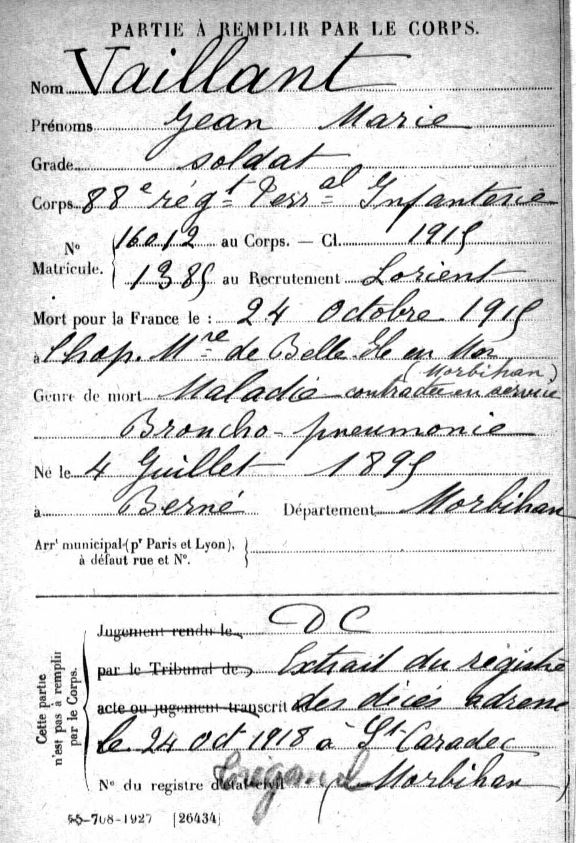 PARTIE À REMPLIR PAR LE CORPS.
Nom Vaillant
Prénoms Jean Marie
Grade soldat
Corps 88e régt Terral Infanterie
No Matricule. 16012 au Corps. — Cl. 1915
1385 au Recrutement Lorient
Mort pour la France le : 24 Octobre 1915
à l'hop. Mre de Belle-Ile en Mer
(Morbihan)
Genre de mort Maladie contractée en service
Broncho-pneumonie
Né le 4 Juillet 1895
à Berné Département Morbihan
Arrt municipal (pr Paris et Lyon),
à défaut rue et No.
Cette partie n'est pas à remplir par le Corps.
Jugement rendu le DC
par le Tribunal de Extrait du registre
acte ou jugement transcrit des décès adressé
le 24 oct 1918 à St Caradec
Trégomel
No du registre d'état civil (Morbihan)
55-708-1927 [26434]